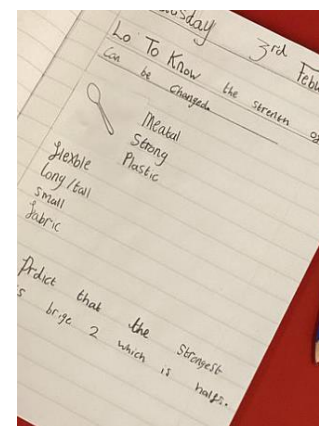 3rd Feb
Lo To Know the strength of
can be changed
Meatal
Strong
Plastic
flexble
long/tall
small
fabric
Prdict that the strongest
is brige 2 which is halfs.